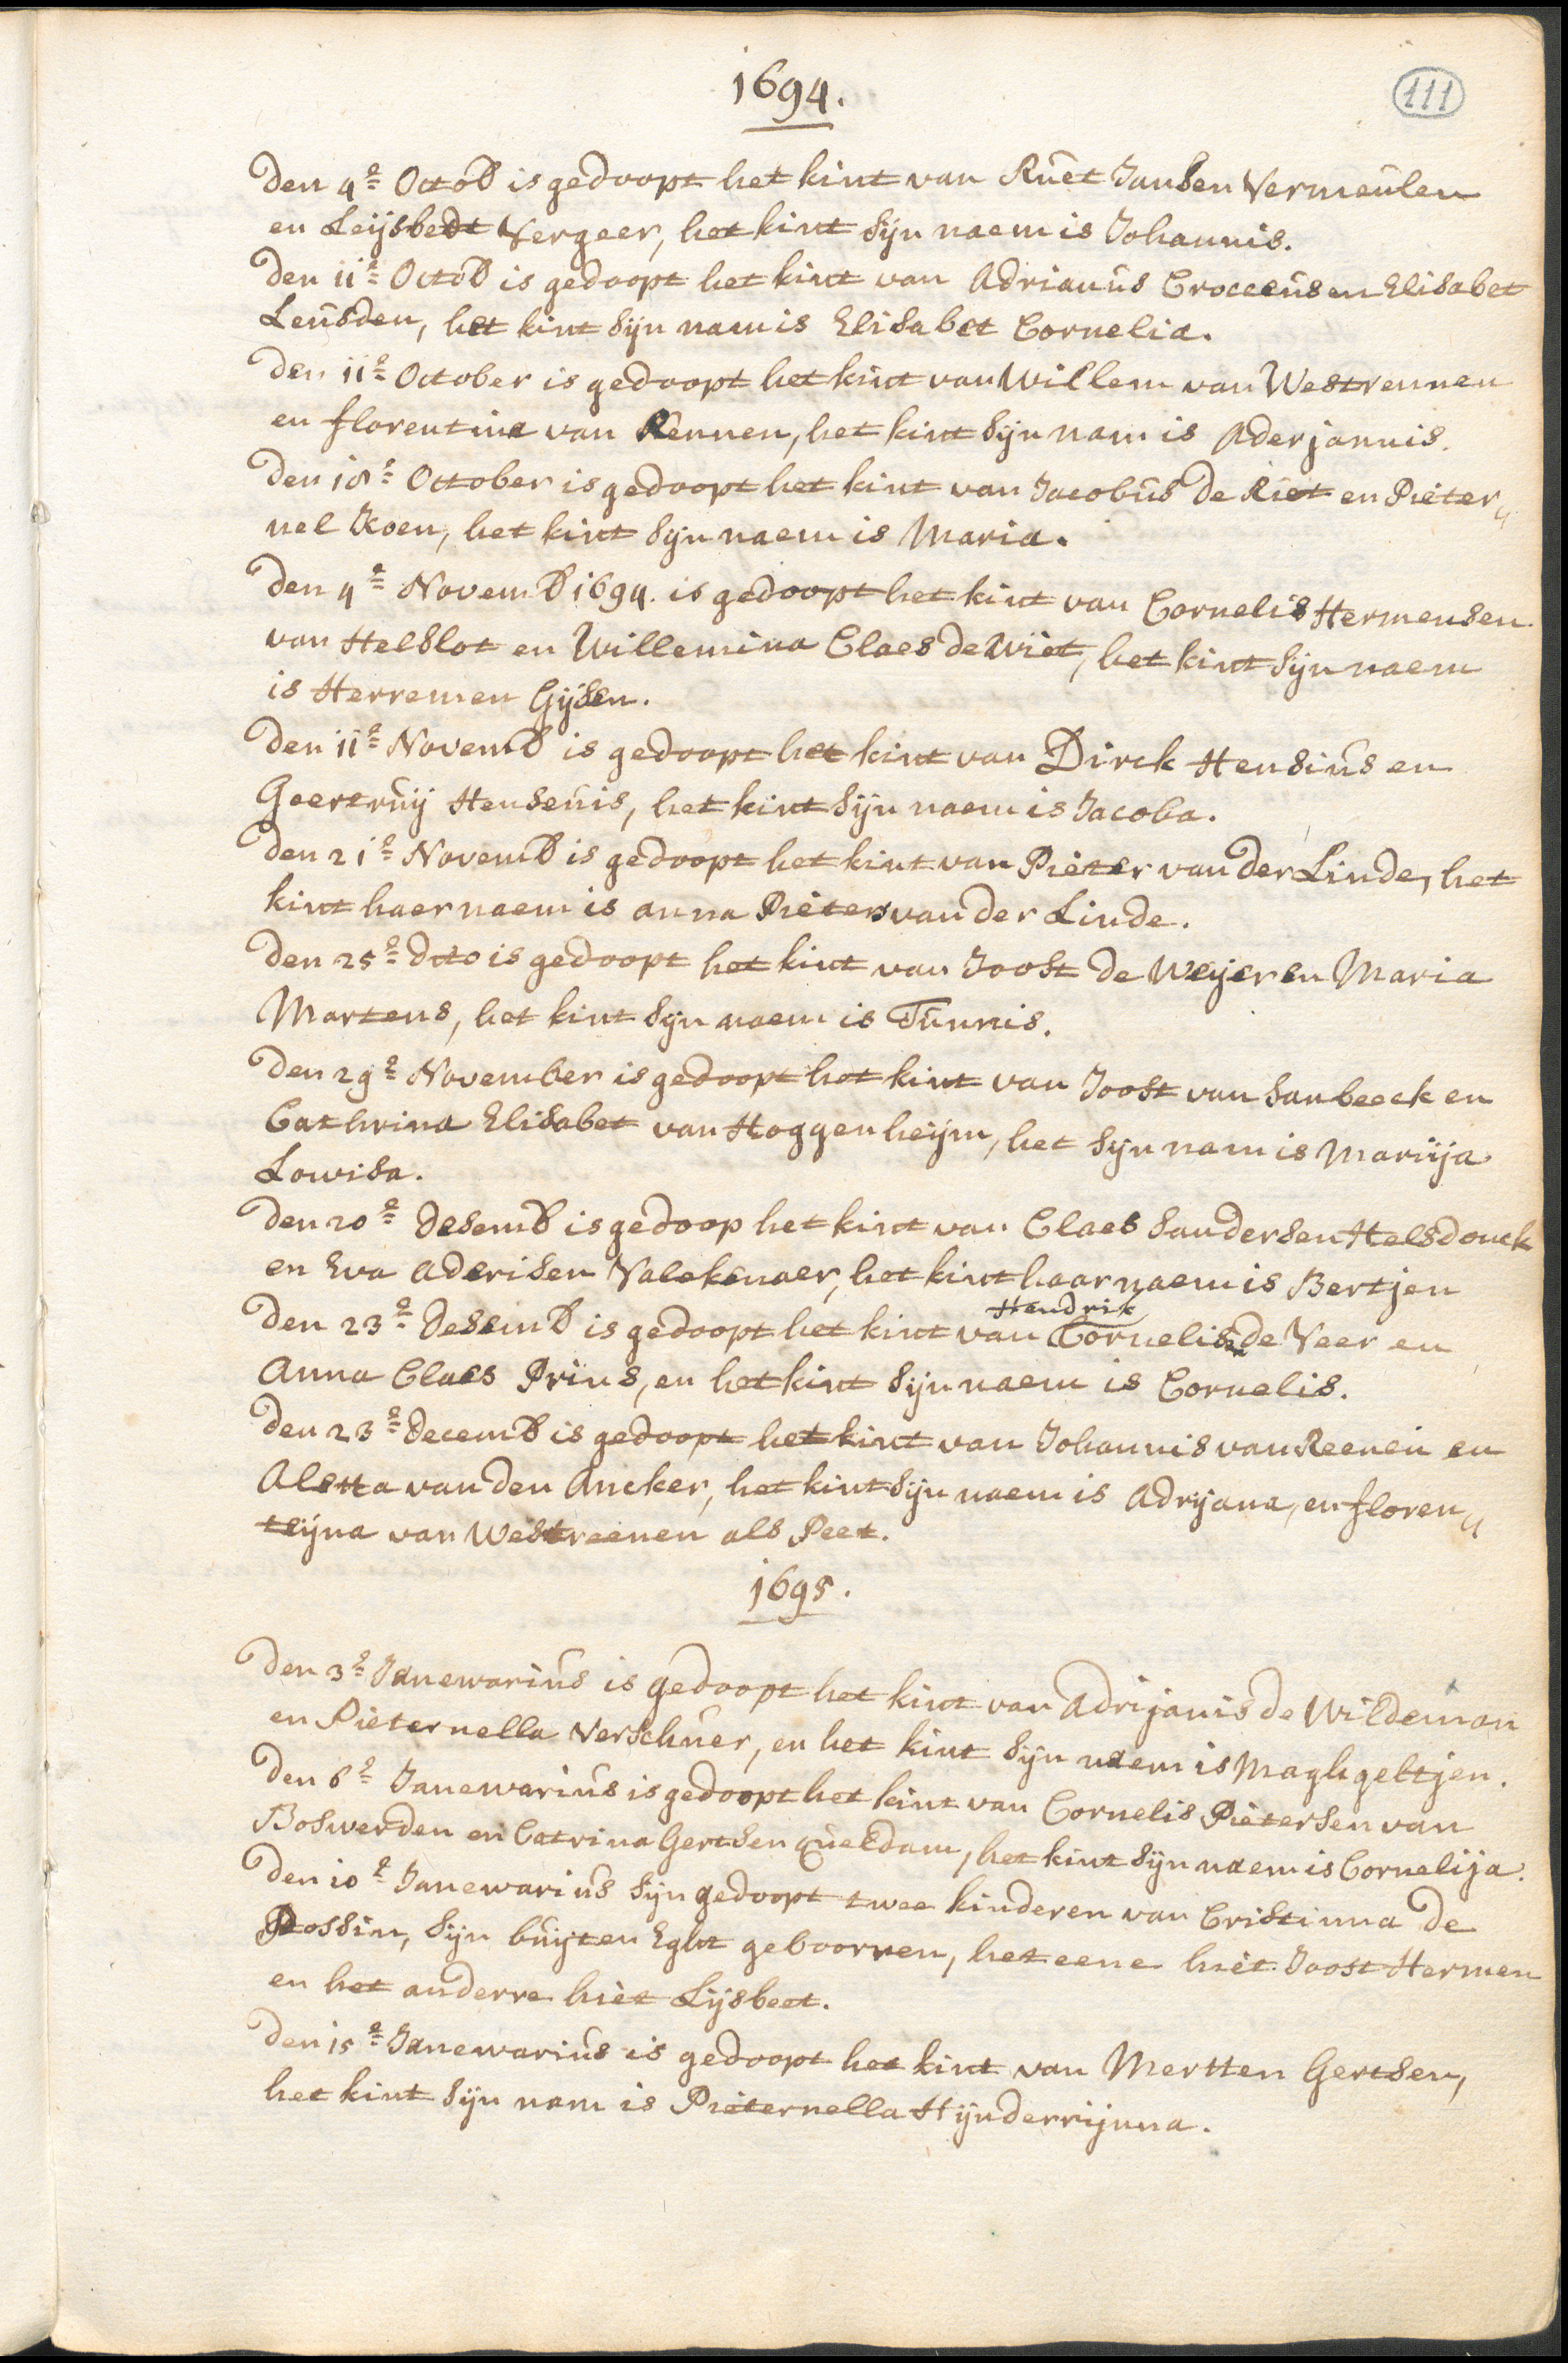 1694.
111
Den 4e Octob is gedoopt het kint van Ruet Jansen Vermeulen
en Leijsbedt Vergeer, het kint sijn naem is Johannis.
Den 11e Octob is gedoopt het kint van Adrianus Croceeus en Elisabet
Leusden, het kint sijn nam is Elisabet Cornelia.
Den 11e October is gedoopt het kint van Willem van Westrennen
en florentina van Rennen, het kint sijn nam is Aderjannis.
Den 18e October is gedoopt het kint van Jacobus de Riet en Pieter„
nel Koen, het kint sijn naem is Maria.
Den 4e Novemb 1694. is gedoopt het kint van Cornelis Hermensen
van Helslot en Willemina Claes de Wiet, het kint sijn naem
is Herremen Gijsen.
Den 11e Novemb is gedoopt het kint van Dirck Hensius en
Geertruij Henseuis, het kint sijn naem is Jacoba.
Den 21e Novemb is gedoopt het kint van Pieter van der Linde, het
kint haer naem is anna Pieters van der Linde.
Den 25e dito is gedoopt het kint van Joost de Weijer en Maria
Martens, het kint sijn naem is Tunnis.
Den 29e November is gedoopt het kint van Joost van Sanbeeck en
Cathrina Elisabet van Hoggenheijm, het sijn nam is Marija
Lowisa.
Den 20e Desemb is gedoop het kint van Claes Sandersen Helsdonck
en Eva Aderisen Valckenaer, het kint haar naem is Bertjen
Hendrik
Den 23e Desemb is gedoopt het kint van Cornelisse de Veer en
Anna Claes Prins, en het kint sijn naem is Cornelis.
Den 23e Decemb is gedoopt het kint van Johannis van Reenen en
Aletta van den Ancker, het kint sijn naem is Adrijana, en floren„
teijna van Westreenen als Peet.
1695.
Den 3e Janewarius is gedoopt het kint van Adrijanis de Wildeman
en Pieternella Verschuer, en het kint sijn naem is Maghgeltjen.
Den 6e Janewarius is gedoopt het kint van Cornelis Pietersen van
Boswerden en Catrina Gertsen Queldam, het kint sijn naem is Cornelija.
Den 10e Janewarius sijn gedoopt twee kinderen van Cristinna de
Possin, sijn buijten Eght geboorren, het eene hiet Joost Hermen
en het anderre hiet Lijsbeet.
Den 15e Janewarius is gedoopt het kint van Mertten Gertsen,
het kint sijn nam is Pieternella Hijnderrijnna.